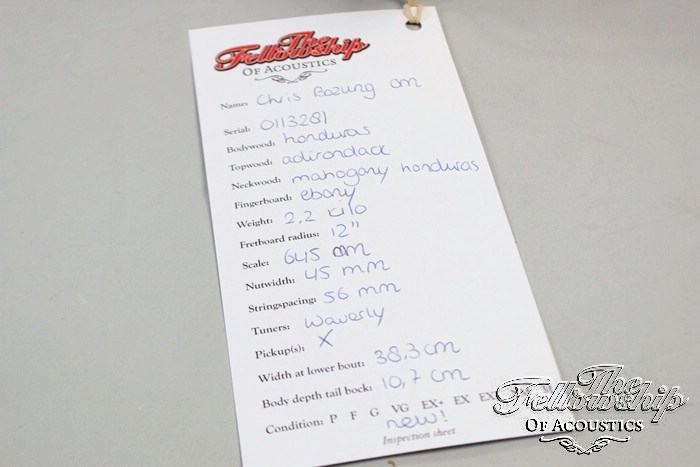 The
Fellowship
OF ACOUSTICS
Name: Chris Bozung om
Serial: 0113281
Bodywood: honduras
Topwood: adirondack
Neckwood: mahogony honduras
Fingerboard: ebony
Weight: 2,2 kilo
Fretboard radius: 12"
Scale: 645 mm
Nutwidth: 45 mm
Stringspacing: 56 mm
Tuners: Waverly
Pickup(s): X
Width at lower bout: 38,3 cm
Body depth tail bock: 10,7 cm
Condition: P F G VG EX+ EX EX
new!
Inspection sheet
The
Fellowship
OF ACOUSTICS